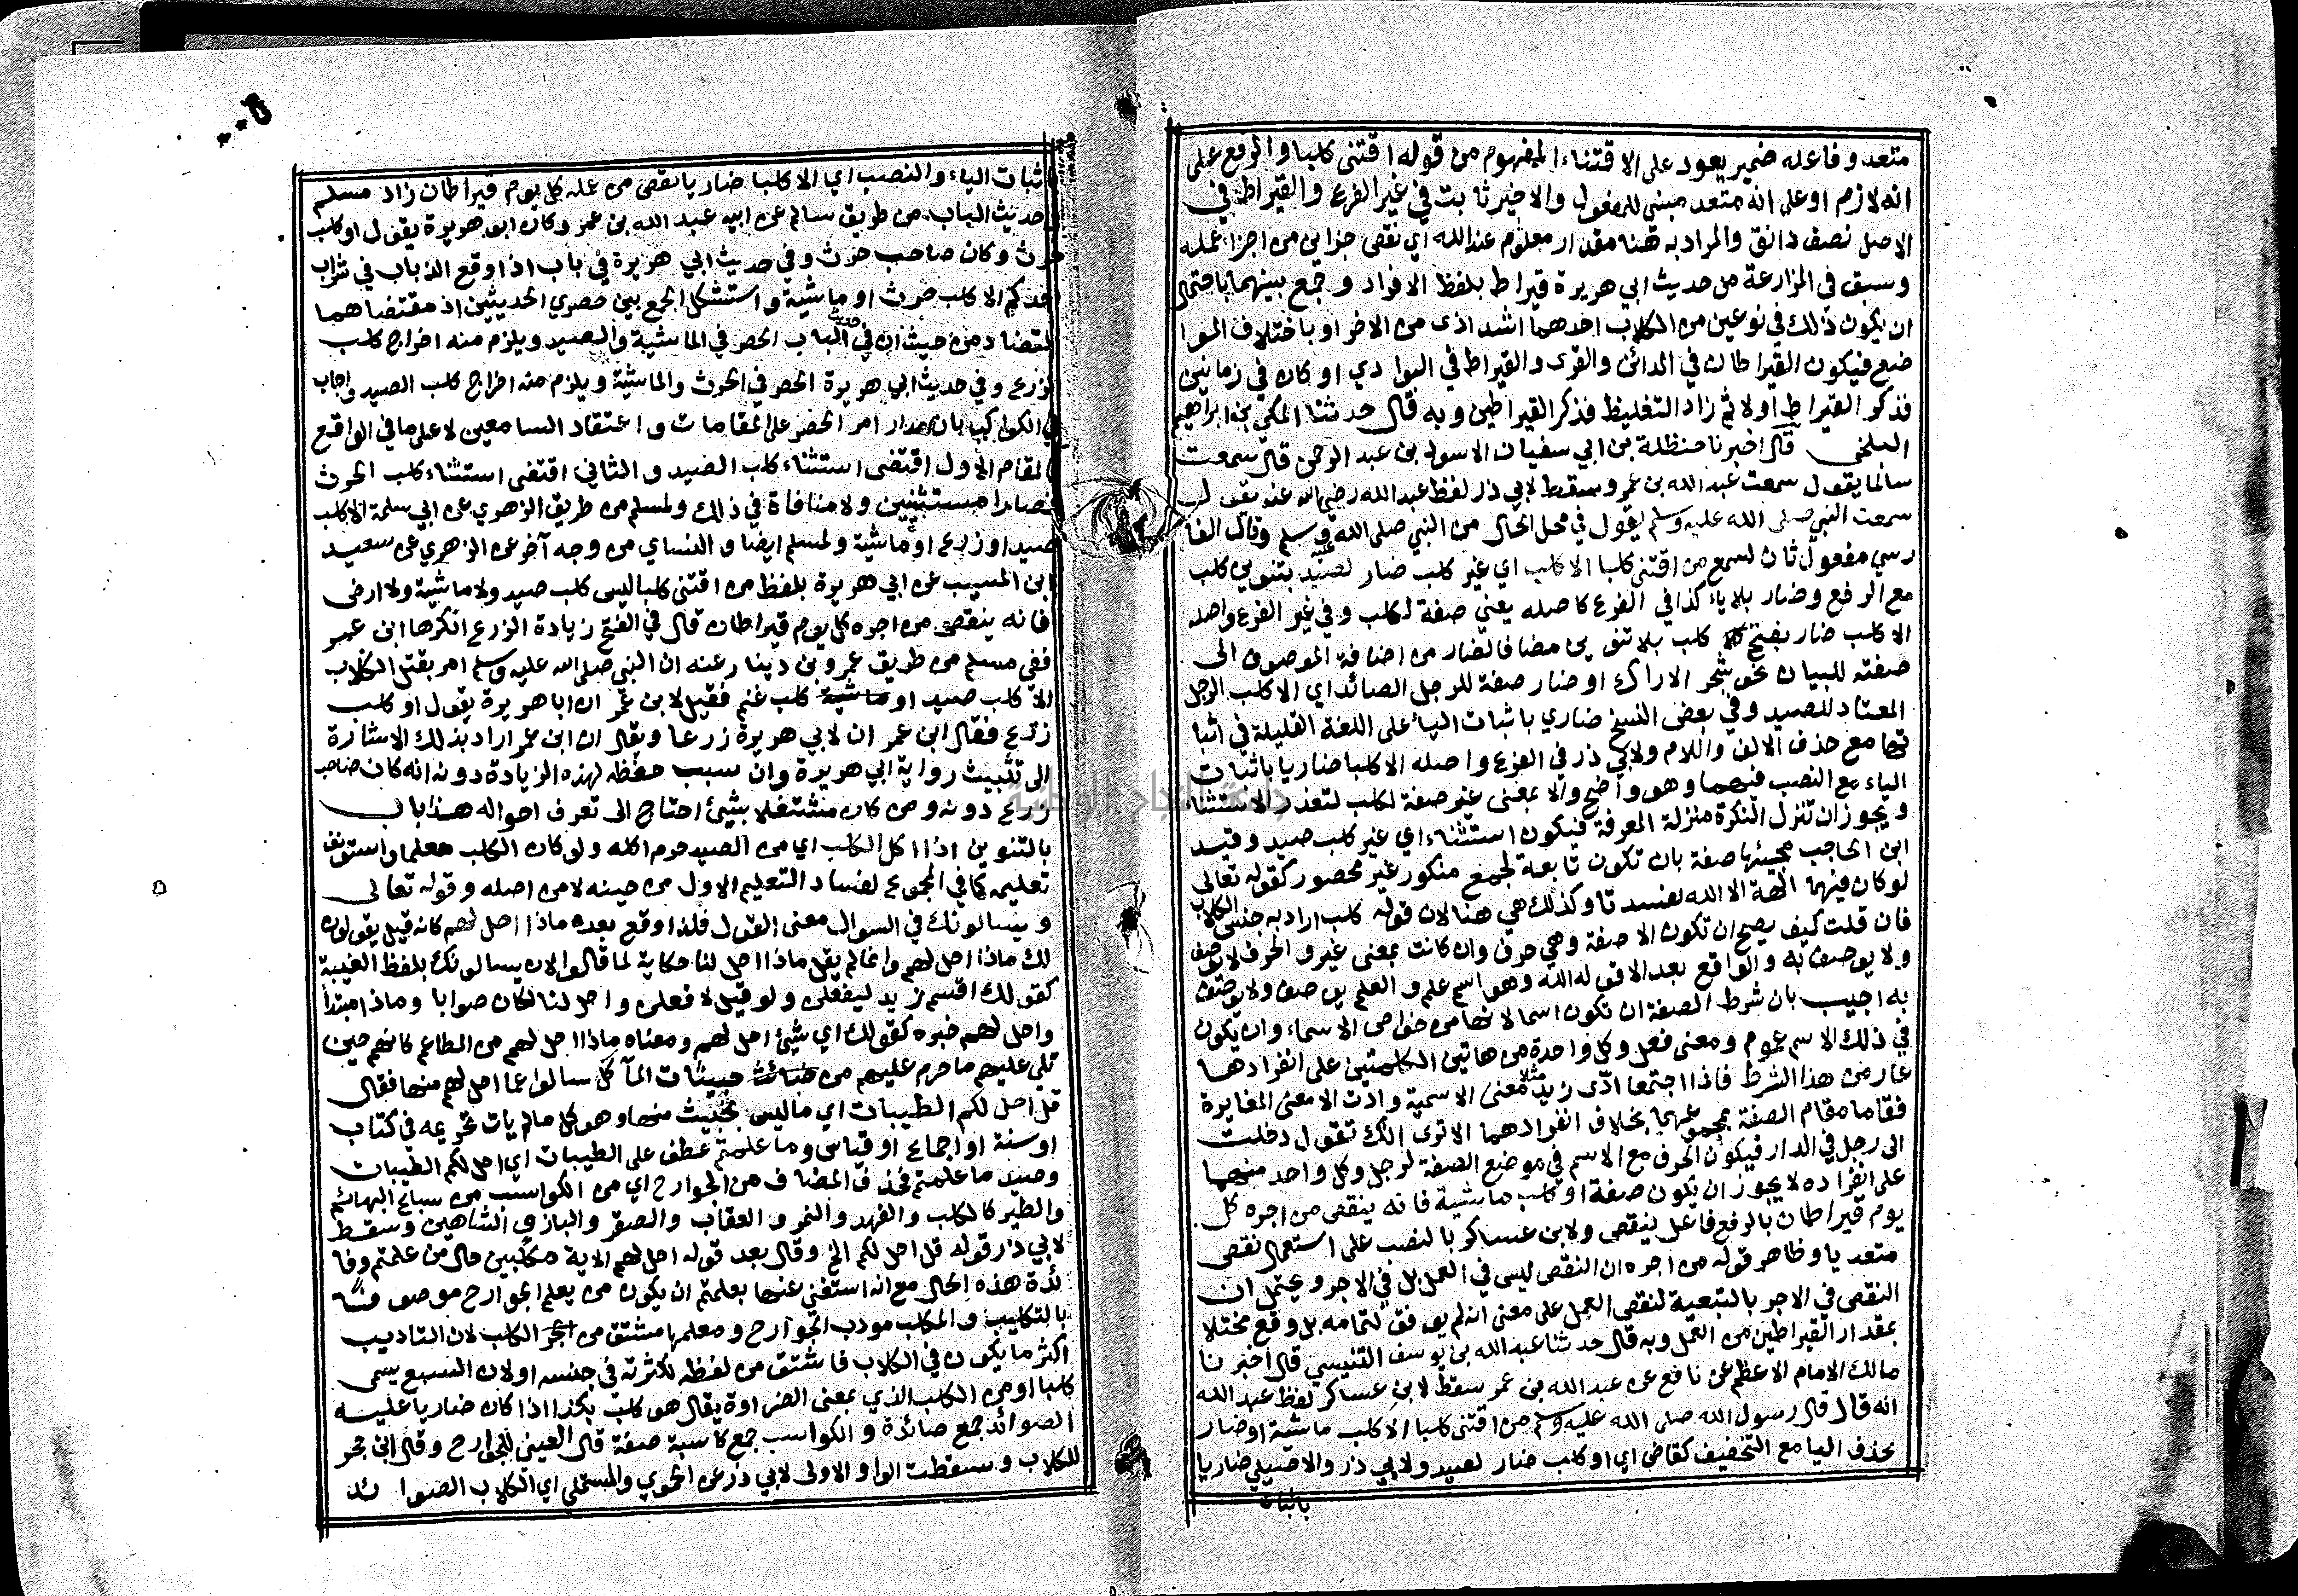 متعد وفاعله ضمير يعود على الاقتناء المفهوم من قوله اقتنى كلبا والرفع على
انه لازم او على انه متعد مبني للمفعول والاخير ثابت في غير الفرع والقيراط في
الاصل نصف دانق والمراد به هنا مقدار معلوم عند الله اي نقص جزاين من اجزاء عمله
وسبق في المزارعة من حديث ابي هريرة قيراط بلفظ الافراد وجمع بينهما باحتمال
ان يكون ذلك في نوعين من الكلاب احدهما اشد اذى من الاخر او باختلاف الموا
ضع فيكون القيراطان في المدائن والقرى والقيراط في البوادي او كان في زمانين
فذكر القيراط اولا ثم زاد التغليظ فذكر القيراطين وبه قال حدثنا المكي بن ابراهيم
البلخي قال اخبرنا حنظلة بن ابي سفيان الاسود بن عبد الرحمن قال سمعت
سالما يقول سمعت عبد الله بن عمر وسقط لابي ذر لفظ عبد الله رضي الله عنه يقول
سمعت النبي صلى الله عليه وسلم يقول في محل الحال من النبي صلى الله عليه وسلم وقال الفا
رسي مفعول ثان لسمع من اقتنى كلبا الا كلب اي غير كلب ضار لصيد بتنوين كلب
مع الرفع وضار بلا ياء كذا في الفرع كاصله يعني صفة لكلب وفي غير الفرع واصله
الا كلب ضار بفتح كلب بلا تنوين مضافا لضار من اضافة الموصوف الى
صفته للبيان نحو شجر الاراك او ضار صفة للرجل الصائد اي الا كلب الرجل
المعتاد للصيد وفي بعض النسخ ضاري باثبات الياء على اللغة القليلة في اثبا
تها مع حذف الالف واللام ولابي ذر في الفرع واصله الا كلبا ضاريا باثبات
الياء مع النصب فيهما وهو واضح والا بمعنى غير صفة لكلب لتعذر الاستثناء
ويجوز ان تنزل النكرة منزلة المعرفة فيكون استثناء اي غير كلب صيد وقيد
ابن الحاجب مجيئها صفة بان تكون تابعة لجمع منكور غير محصور كقوله تعالى
لو كان فيهما الهة الا الله لفسدتا وكذلك هي هنا لان قوله كلب اراد به جنس الكلاب
فان قلت كيف يصح ان تكون الا صفة وهي حرف وان كانت بمعنى غير والحرف لا يوصف
ولا يوصف به والواقع بعد الا قوله الله وهو اسم علم والعلم يوصف ولا يوصف
به اجيب بان شرط الصفة ان تكون اسما لانها من خواص الاسماء وان يكون
في ذلك الاسم عموم ومعنى فعل وكل واحدة من هاتين الكلمتين على انفرادها
عار من هذا الشرط فاذا اجتمعا ادى زيد مثلا معنى الاسمية وادت الا معنى المغايرة
فقاما مقام الصفة بمجموعهما بخلاف انفرادهما الا ترى انك تقول دخلت
الى رجل في الدار فيكون الحرف مع الاسم في موضع الصفة لرجل وكل واحد منهما
على انفراده لا يجوز ان يكون صفة او كلب ماشية فانه ينقص من اجره كل
يوم قيراطان بالرفع فاعل ينقص ولابن عساكر بالنصب على استعمال نقص
متعديا وظاهر قوله من اجره ان النقص ليس في العمل بل في الاجر ويحتمل ان
النقص في الاجر بالتبعية لنقص العمل على معنى انه لم يوفق لتمامه بل وقع مختلا
بمقدار القيراطين من العمل وبه قال حدثنا عبد الله بن يوسف التنيسي قال اخبرنا
مالك الامام الاعظم عن نافع عن عبد الله بن عمر سقط لابن عساكر لفظ عبد الله
انه قال قال رسول الله صلى الله عليه وسلم من اقتنى كلبا الا كلب ماشية او ضار
بحذف اليا مع التخفيف كقاض اي او كلب ضار لصيد ولابي ذر والاصيلي ضاريا
باثبات
باثبات الياء والنصب اي الا كلبا ضاريا نقص من عمله كل يوم قيراطان زاد مسلم
حديث الباب من طريق سالم عن ابيه عبد الله بن عمر وكان ابو هريرة يقول او كلب
حرث وكان صاحب حرث وفي حديث ابي هريرة في باب اذا وقع الذباب في شراب
احدكم الا كلب حرث او ماشية واستشكل الجمع بين حصري الحديثين اذ مقتضاهما
التضاد من حيث ان في حديث الباب الحصر في الماشية والصيد ويلزم منه اخراج كلب
الزرع وفي حديث ابي هريرة الحصر في الحرث والماشية ويلزم منه اخراج كلب الصيد واجاب
في الكواكب بان مدار امر الحصر على المقامات واعتقاد السامعين لا على ما في الواقع
فالمقام الاول اقتضى استثناء كلب الصيد والثاني اقتضى استثناء كلب الحرث
فصارا مستثنيين ولا منافاة في ذلك ولمسلم من طريق الزهري عن ابي سلمة الا كلب
صيد او زرع او ماشية ولمسلم ايضا والنساي من وجه آخر عن الزهري عن سعيد
ابن المسيب عن ابي هريرة بلفظ من اقتنى كلبا ليس كلب صيد ولا ماشية ولا ارض
فانه ينقص من اجره كل يوم قيراطان قال في الفتح زيادة الزرع انكرها ابن عمر
ففي مسلم من طريق عمرو بن دينار عنه ان النبي صلى الله عليه وسلم امر بقتل الكلاب
الا كلب صيد او ماشية كلب غنم فقيل لابن عمر ان ابا هريرة يقول او كلب
زرع فقال ابن عمر ان لابي هريرة زرعا ويقال ان ابن عمر اراد بذلك الاشارة
الى تثبيت رواية ابي هريرة وان سبب حفظه لهذه الزيادة دونه انه كان صاحب
زرع دونه ومن كان منشتغلا بشيئ احتاج الى تعرف احواله هذا باب
بالتنوين اذا اكل الكلب اي من الصيد حرم اكله ولو كان الكلب معلما واستونف
تعليمه كما في المجموع لفساد التعليم الاول من حينه لا من اصله وقوله تعالى
ويسالونك في السوال معنى القول فلذا وقع بعده ماذا احل لهم كانه قيل يقولون
لك ماذا احل لهم وانما لم يقل ماذا احل لنا حكاية لما قالوا لان يسالونك بلفظ الغيبة
كقولك اقسم زيد ليفعلن ولو قيل لافعلن واحل لنا لكان صوابا وماذا مبتدا
واحل لهم خبره كقولك اي شيئ احل لهم ومعناه ماذا احل لهم من المطاعم كانهم حين
تلي عليهم ما حرم عليهم من خبيثات المآكل سالوا عما احل لهم منها فقال
قل احل لكم الطيبات اي ما ليس بخبيث منها وهو كل ما لم يات تحريمه في كتاب
او سنة او اجماع او قياس وما علمتم عطف على الطيبات اي احل لكم الطيبات
وصيد ما علمتم فحذف المضاف من الجوارح اي من الكواسب من سباع البهائم
والطير كالكلب والفهد والنمر والعقاب والصقر والبازي والشاهين وسقط
لابي ذر قوله قل احل لكم الخ وقال بعد قوله احل لهم الاية مكلبين حال من علمتم وفا
ئدة هذه الحال مع انه استغني عنها بعلمتم ان يكون من يعلم الجوارح موصوفا
بالتكليب والمكلب مودب الجوارح ومعلمها مشتق من الكلب لان التاديب
اكثر ما يكون في الكلاب فاشتق من لفظه لكثرته في جنسه او لان السبع يسمى
كلبا او من الكلب الذي بمعنى الضراوة يقال هو كلب بكذا اذا كان ضاريا عليه
الصوائد جمع صائدة والكواسب جمع كاسبة صفة قال العيني للجوارح وقال ابن حجر
للكلاب وسقطت الواو الاولى لابي ذر عن الحموي والمستملي اي الكلاب الصوائد